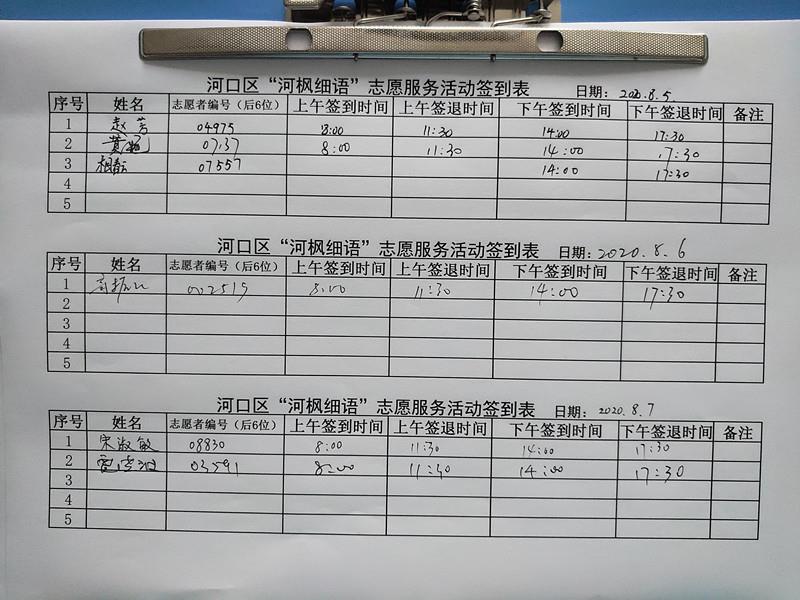 河口区“河枫细语”志愿服务活动签到表 日期：2020.8.5
序号 姓名 志愿者编号（后6位） 上午签到时间 上午签退时间 下午签到时间 下午签退时间 备注
1 赵芳 04975 8:00 11:30 14:00 17:30
2 黄 8:00 11:30 14:00 17:30
3 07557 14:00 17:30
4
5
河口区“河枫细语”志愿服务活动签到表 日期：2020.8.6
序号 姓名 志愿者编号（后6位） 上午签到时间 上午签退时间 下午签到时间 下午签退时间 备注
1 002519 8:00 11:30 14:00 17:30
2
3
4
5
河口区“河枫细语”志愿服务活动签到表 日期：2020.8.7
序号 姓名 志愿者编号（后6位） 上午签到时间 上午签退时间 下午签到时间 下午签退时间 备注
1 宋淑敏 08830 8:00 11:30 14:00 17:30
2 03591 8:00 11:30 14:00 17:30
3
4
5